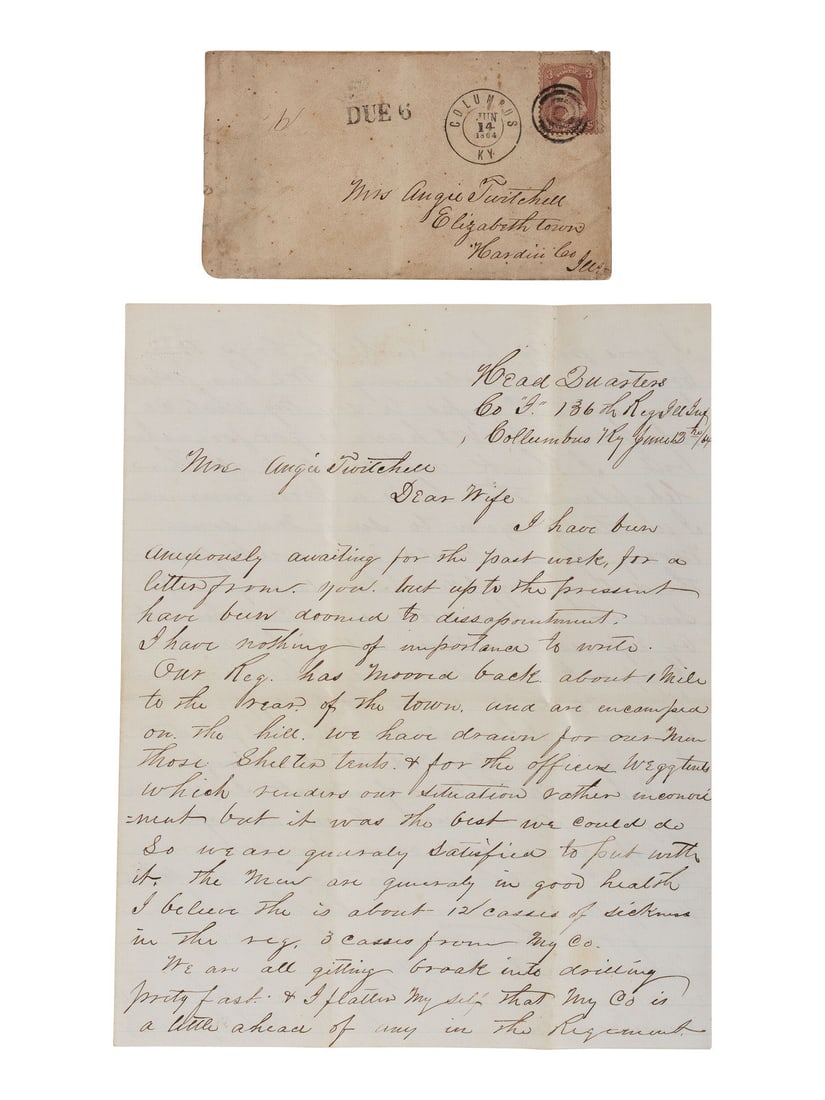 DUE 6
COLUMBUS
JUN
14
1864
KY.
3 3
Mrs Angie Twitchell
Elizabethtown
Hardin Co
Ills
Head Quarters
Co "I" 136th Reg Ill Inf
Collumbus Ky June 13th /64
Mrs Angie Twitchell
Dear Wife
I have been
anxeously awaiting for the past week, for a
letter from you. but up to the present
have been doomed to dissapointment.
I have nothing of importance to write.
Our Reg. has mooved back about 1 Mile
to the rear of the town. and are incamped
on the hill. we have drawn for our Men
those Shelter tents & for the officers Wegg tents
which renders our situation rather inconvei
=ment but it was the best we could do
So we are generaly satisfied to put with
it. the Men are generaly in good health
I believe the is about 12 casses of sickness
in the reg. 3 casses from My Co.
We are all getting broak into drilling
prety fast. & I flatter My self that My Co is
a little ahead of any in the Regement.